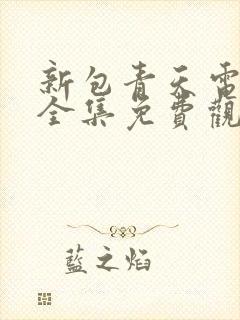 新包青天電
全集免費觀
藍之焰